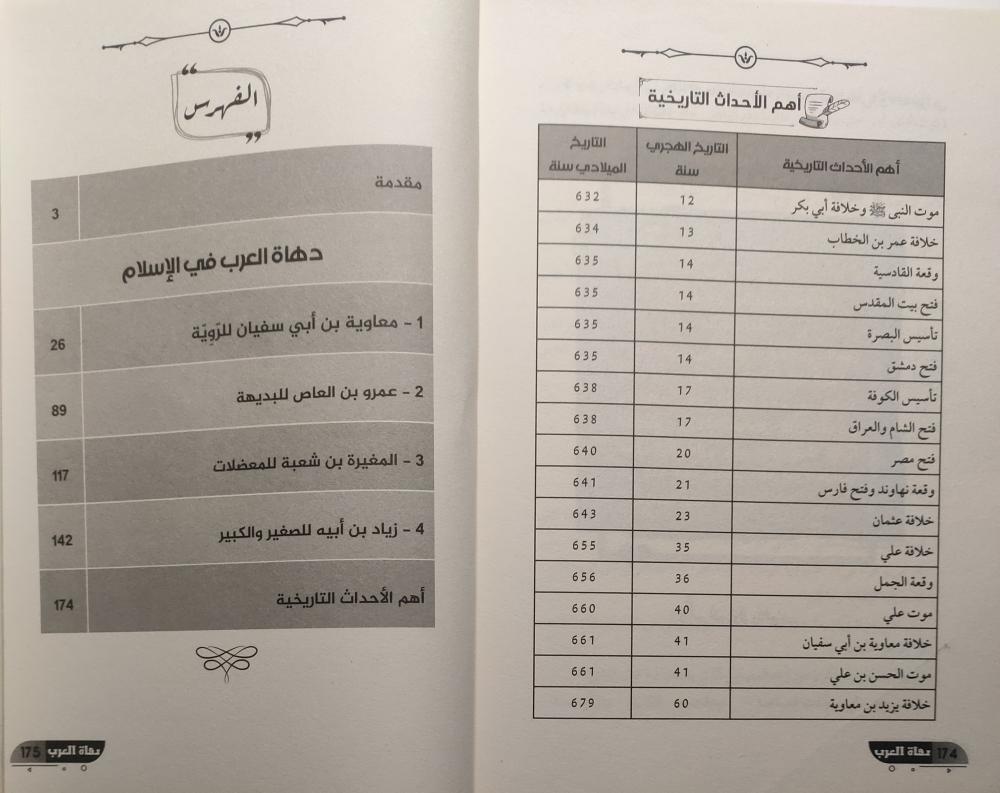 أهم الأحداث التاريخية
أهم الأحداث التاريخية | التاريخ الهجري سنة | التاريخ الميلادي سنة
موت النبي ﷺ وخلافة أبي بكر | 12 | 632
خلافة عمر بن الخطاب | 13 | 634
وقعة القادسية | 14 | 635
فتح بيت المقدس | 14 | 635
تأسيس البصرة | 14 | 635
فتح دمشق | 14 | 635
تأسيس الكوفة | 17 | 638
فتح الشام والعراق | 17 | 638
فتح مصر | 20 | 640
وقعة نهاوند وفتح فارس | 21 | 641
خلافة عثمان | 23 | 643
خلافة علي | 35 | 655
وقعة الجمل | 36 | 656
موت علي | 40 | 660
خلافة معاوية بن أبي سفيان | 41 | 661
موت الحسن بن علي | 41 | 661
خلافة يزيد بن معاوية | 60 | 679
174 دهاة العرب
الفهرس
مقدمة 3
دهاة العرب في الإسلام
1 - معاوية بن أبي سفيان للرّويّة 26
2 - عمرو بن العاص للبديهة 89
3 - المغيرة بن شعبة للمعضلات 117
4 - زياد بن أبيه للصغير والكبير 142
أهم الأحداث التاريخية 174
دهاة العرب 175